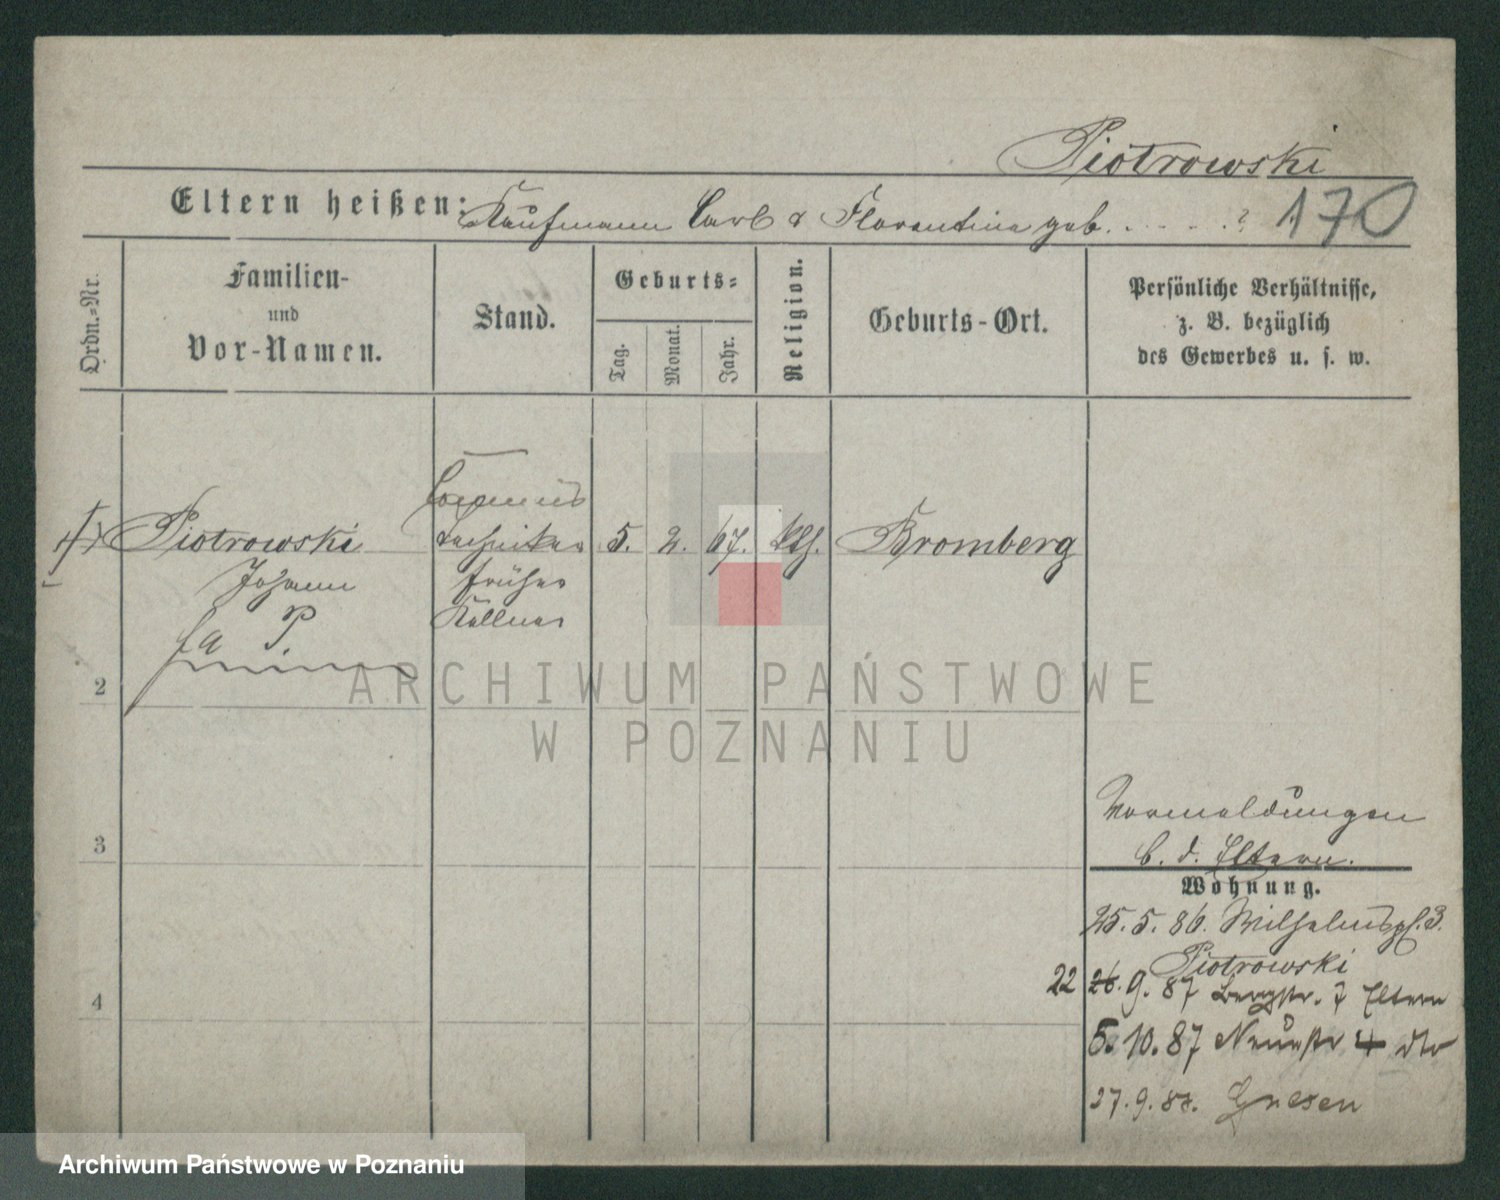 Piotrowski
Eltern heißen: Kaufmann Carl & Florentine geb. . - - - . ? 170
Ordn.-Nr.
Familien-
und
Vor-Namen.
Stand.
Geburts-
Tag.
Monat.
Jahr.
Religion.
Geburts-Ort.
Persönliche Verhältnisse,
z. B. bezüglich
des Gewerbes u. s. w.
Piotrowski
Johann
Commis
Techniker
früher
Kellner
5. 2. 67. kth. Bromberg
2
3
4
Vormeldungen
b. d. Eltern.
Wohnung.
25. 5. 86. Wilhelmspl. 3.
Piotrowski
22 26. 9. 87 Bergstr. 7 Eltern
5. 10. 87 Neuestr 4 dto
27. 9. 88. Gnesen
ARCHIWUM PAŃSTWOWE
W POZNANIU
Archiwum Państwowe w Poznaniu